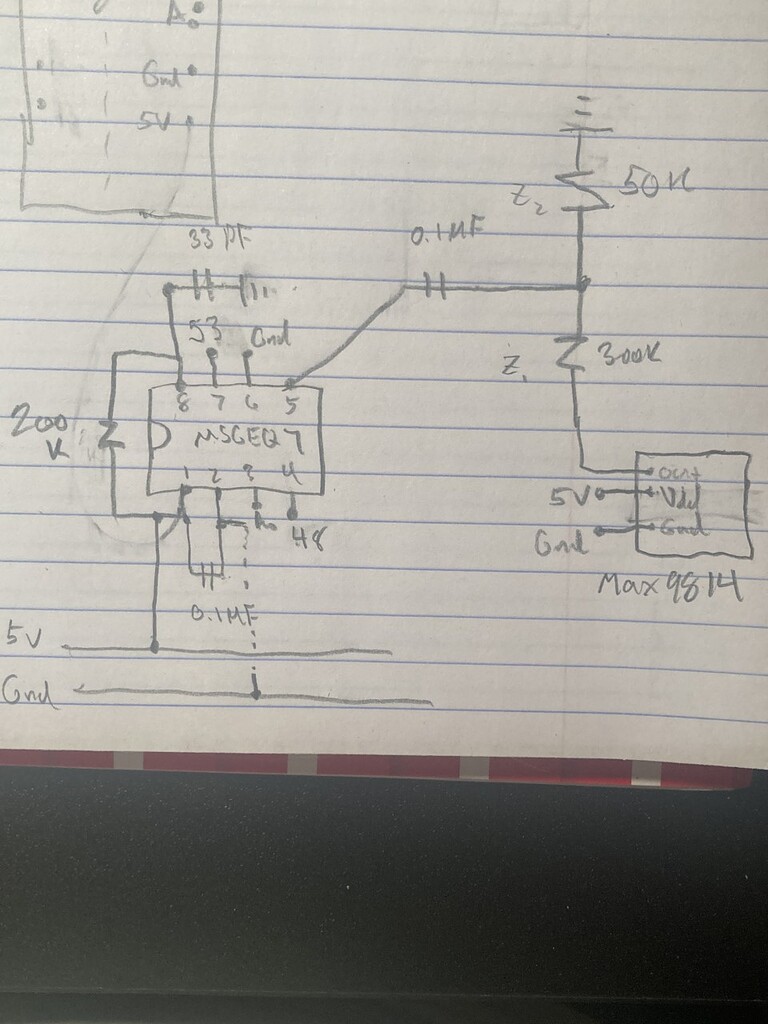 A0
Gnd
5V
33 PF
0.1MF
Z2
50K
53
Gnd
Z1
300K
8 7 6 5
200
K
MSGEQ7
1 2 3 4
A0
48
out
5V
Vdd
Gnd
Gnd
Max9814
0.1MF
5V
Gnd